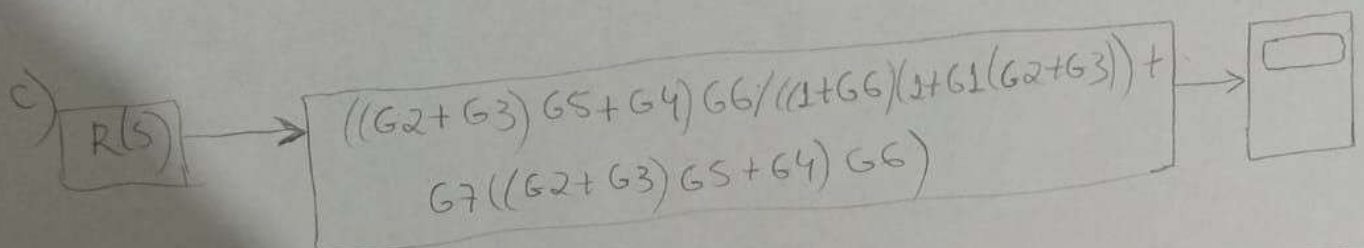 c)
R(S)
((G2+G3)G5+G4)G6/((1+G6)(1+G1(G2+G3))+
G7((G2+G3)G5+G4)G6)